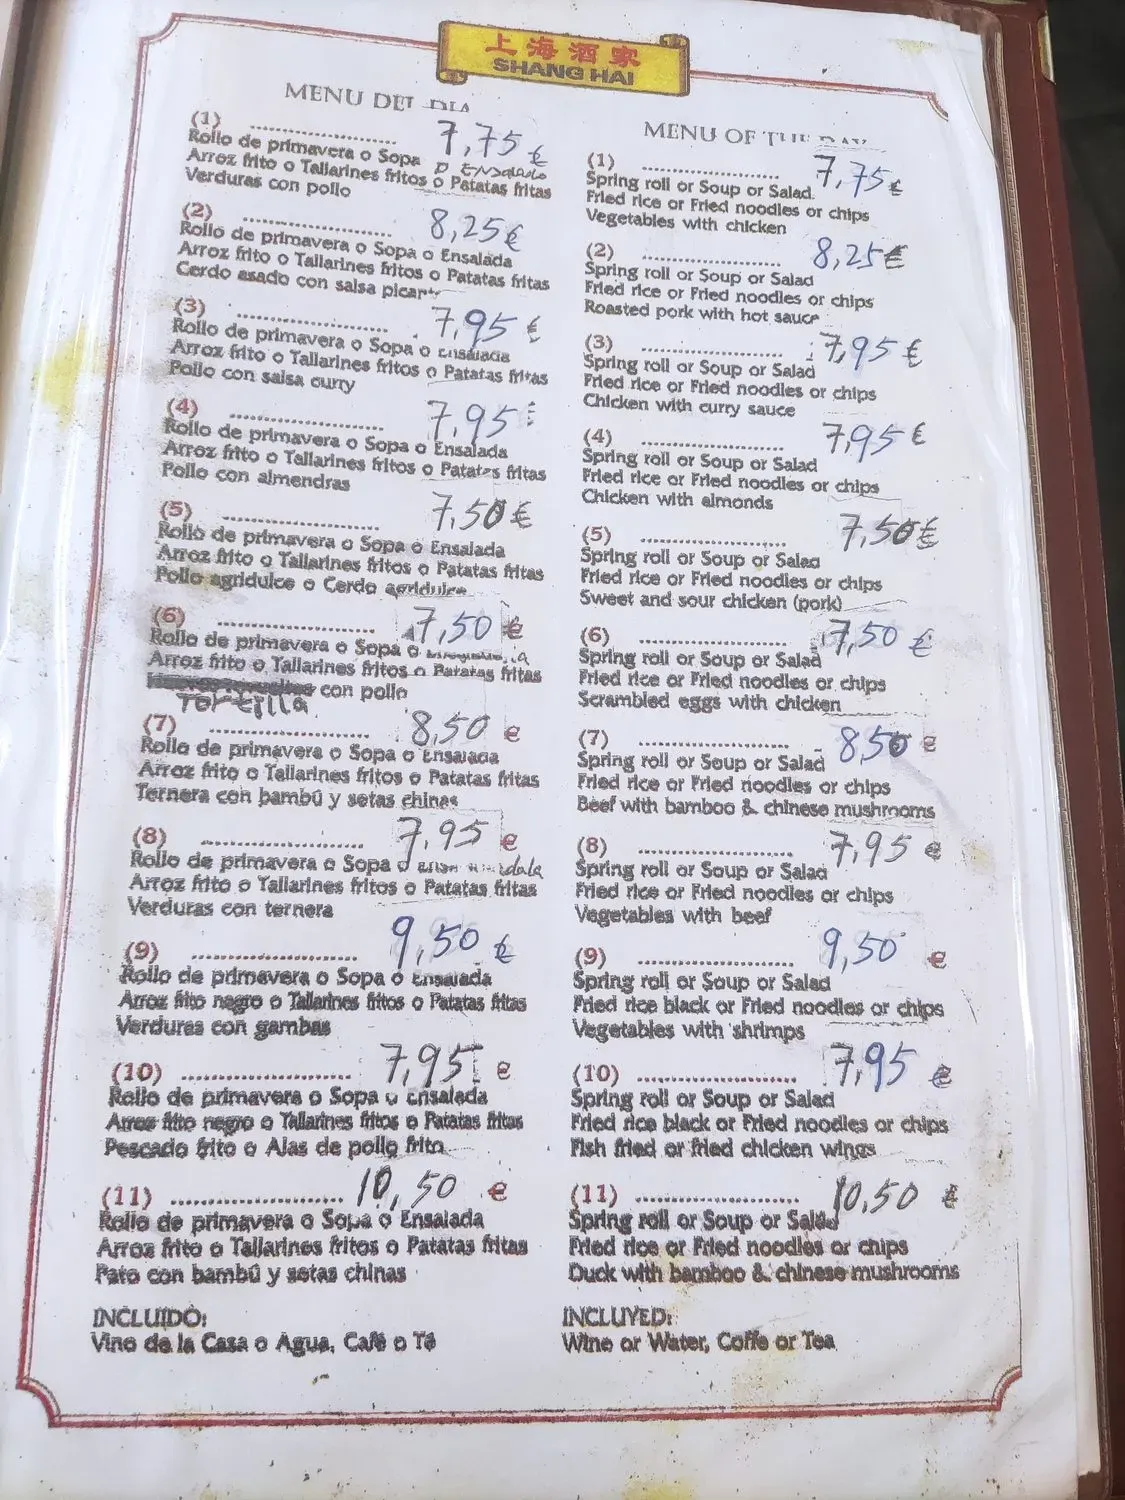 上海酒家
SHANG HAI
MENU DEL DIA
(1) ........................ 7,75 €
Rollo de primavera o Sopa o Ensalada
Arroz frito o Tallarines fritos o Patatas fritas
Verduras con pollo
(2) ........................ 8,25 €
Rollo de primavera o Sopa o Ensalada
Arroz frito o Tallarines fritos o Patatas fritas
Cerdo asado con salsa picante
(3) ........................ 7,95 €
Rollo de primavera o Sopa o Ensalada
Arroz frito o Tallarines fritos o Patatas fritas
Pollo con salsa curry
(4) ........................ 7,95
Rollo de primavera o Sopa o Ensalada
Arroz frito o Tallarines fritos o Patatas fritas
Pollo con almendras
(5) ........................ 7,50 €
Rollo de primavera o Sopa o Ensalada
Arroz frito o Tallarines fritos o Patatas fritas
Pollo agridulce o Cerdo agridulce
(6) ........................ 7,50 €
Rollo de primavera o Sopa o
Arroz frito o Tallarines fritos o Patatas fritas
con pollo
Tortilla
(7) ........................ 8,50 €
Rollo de primavera o Sopa o Ensalada
Arroz frito o Tallarines fritos o Patatas fritas
Ternera con bambú y setas chinas
(8) ........................ 7,95 €
Rollo de primavera o Sopa o
Arroz frito o Tallarines fritos o Patatas fritas
Verduras con ternera
(9) ........................ 9,50 €
Rollo de primavera o Sopa o Ensalada
Arroz frito negro o Tallarines fritos o Patatas fritas
Verduras con gambas
(10) ........................ 7,95 €
Rollo de primavera o Sopa o Ensalada
Arroz frito negro o Tallarines fritos o Patatas fritas
Pescado frito o Alas de pollo frito
(11) ........................ 10,50 €
Rollo de primavera o Sopa o Ensalada
Arroz frito o Tallarines fritos o Patatas fritas
Pato con bambú y setas chinas
INCLUIDO:
Vino de la Casa o Agua, Café o Té
MENU OF THE DAY
(1) ........................ 7,75 €
Spring roll or Soup or Salad
Fried rice or Fried noodles or chips
Vegetables with chicken
(2) ........................ 8,25 €
Spring roll or Soup or Salad
Fried rice or Fried noodles or chips
Roasted pork with hot sauce
(3) ........................ 7,95 €
Spring roll or Soup or Salad
Fried rice or Fried noodles or chips
Chicken with curry sauce
(4) ........................ 7,95 €
Spring roll or Soup or Salad
Fried rice or Fried noodles or chips
Chicken with almonds
(5) ........................ 7,50 €
Spring roll or Soup or Salad
Fried rice or Fried noodles or chips
Sweet and sour chicken (pork)
(6) ........................ 7,50 €
Spring roll or Soup or Salad
Fried rice or Fried noodles or chips
Scrambled eggs with chicken
(7) ........................ 8,50 €
Spring roll or Soup or Salad
Fried rice or Fried noodles or chips
Beef with bamboo & chinese mushrooms
(8) ........................ 7,95 €
Spring roll or Soup or Salad
Fried rice or Fried noodles or chips
Vegetables with beef
(9) ........................ 9,50 €
Spring roll or Soup or Salad
Fried rice black or Fried noodles or chips
Vegetables with shrimps
(10) ........................ 7,95 €
Spring roll or Soup or Salad
Fried rice black or Fried noodles or chips
Fish fried or fried chicken wings
(11) ........................ 10,50 €
Spring roll or Soup or Salad
Fried rice or Fried noodles or chips
Duck with bamboo & chinese mushrooms
INCLUYED:
Wine or Water, Coffe or Tea